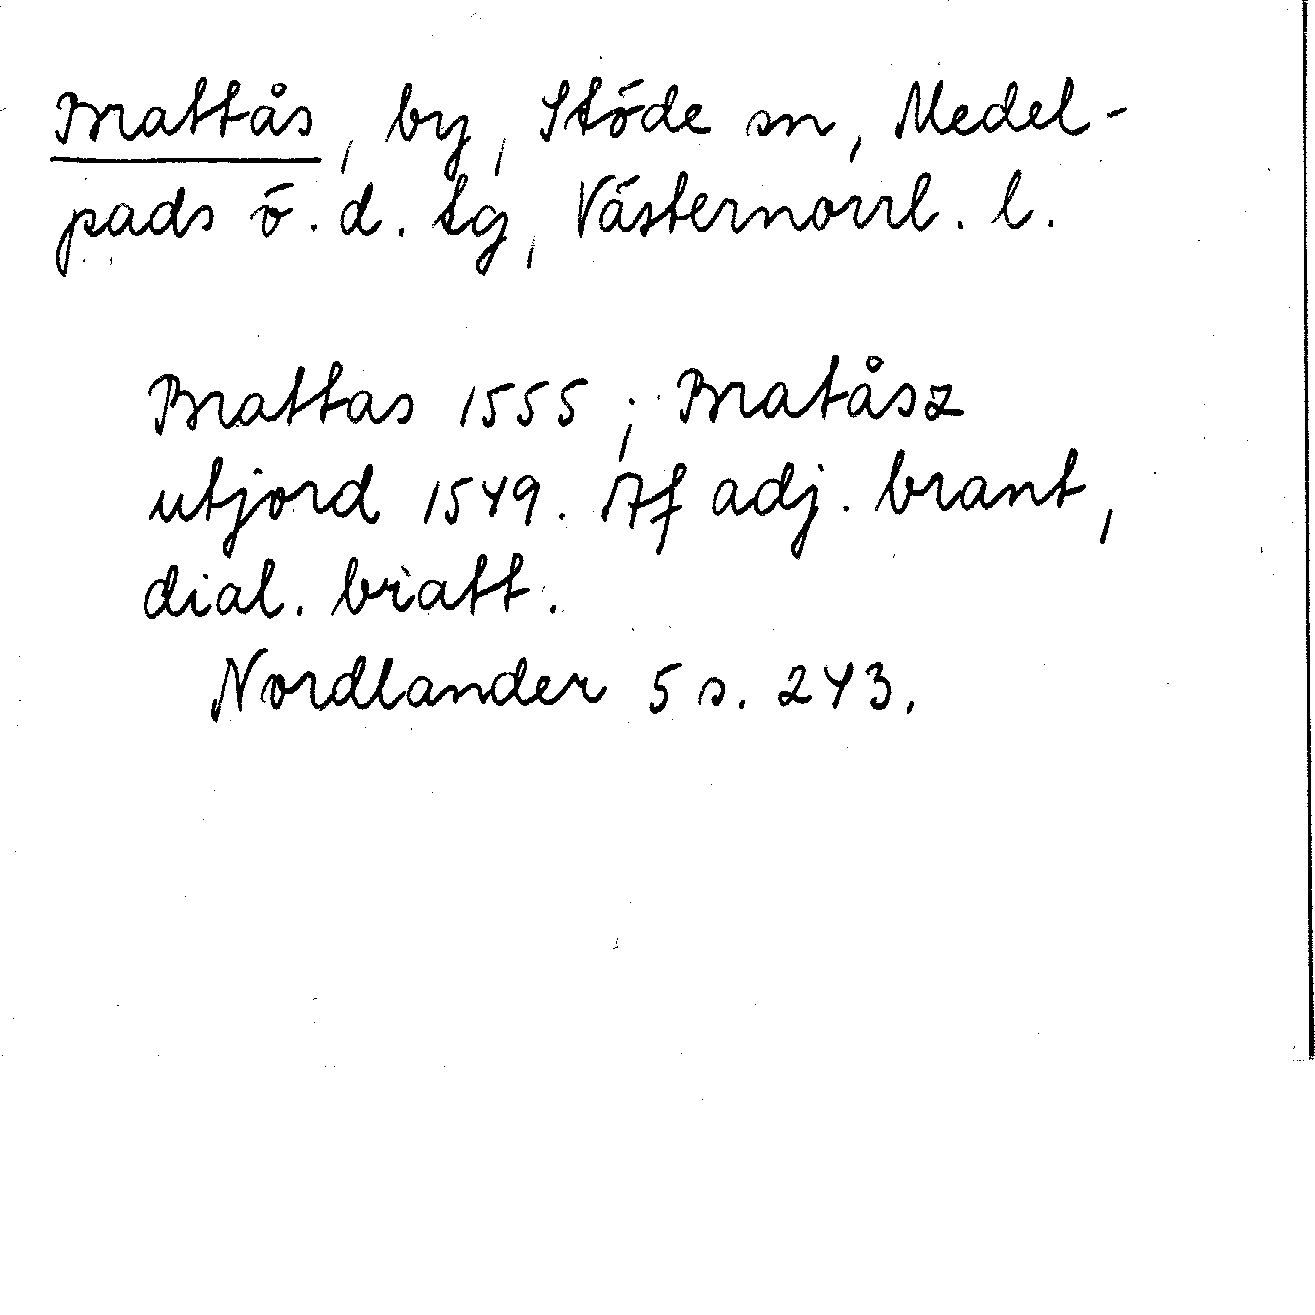 Brattås, by, Stöde sn, Medel-
pads ö. d. tg, Västernorrl. l.
Brattas 1555; Bratåsz
utjord 1549. Af adj. brant,
dial. bratt.
Nordlander 5 s. 243.